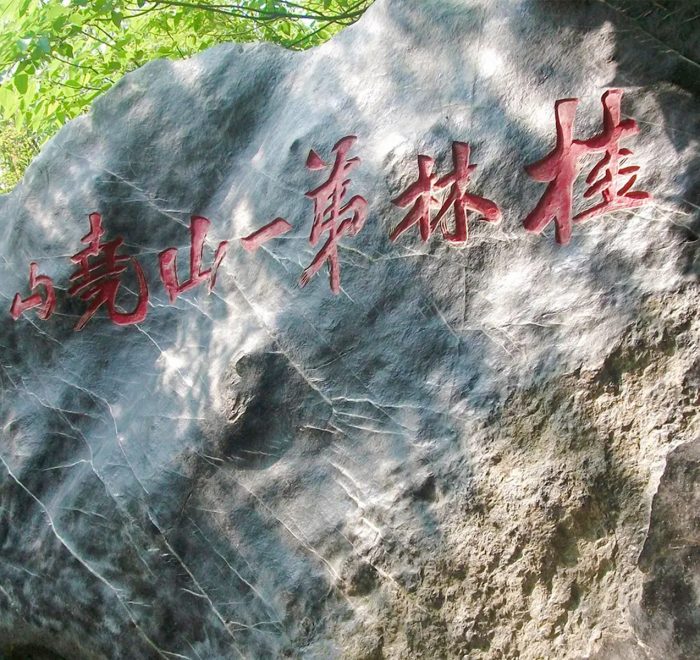 桂林第一山堯山